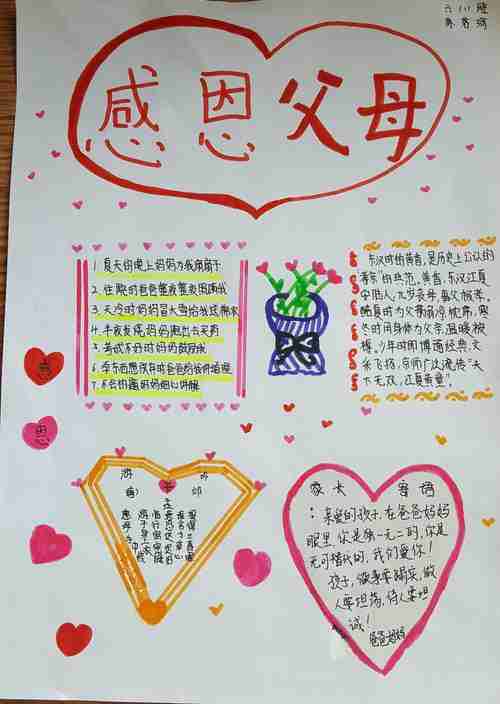 六(1)班
感恩父母
1. 夏天的晚上妈妈为我扇扇子
2. 住院时爸爸整夜整夜照顾我
3. 天冷时妈妈冒大雪给我送棉衣
4. 半夜发烧妈妈跑出去买药
5. 考试不好时妈妈鼓励我
7. 不会的题妈妈细心讲解
东汉时的黄香,是历史上公认的
"孝亲"的典范。黄香,东汉江夏
中国人,九岁丧母,事父极孝。
酷夏时为父亲扇凉枕席,寒
冬时用身体为父亲温暖被
褥。少年时即博通经典,文
采飞扬,京师广泛流传"天
下无双,江夏黄童"。
感
恩
游子吟
孟郊
慈母手中线
游子身上衣
临行密密缝
意恐迟迟归
谁言寸草心
报得三春晖
家长寄语
:亲爱的孩子,在爸爸妈妈
眼里,你是独一无二的,你是
无可替代的,我们爱你!
孩子,做事要踏实,做
人要坦荡,待人要坦
诚!
爸爸妈妈